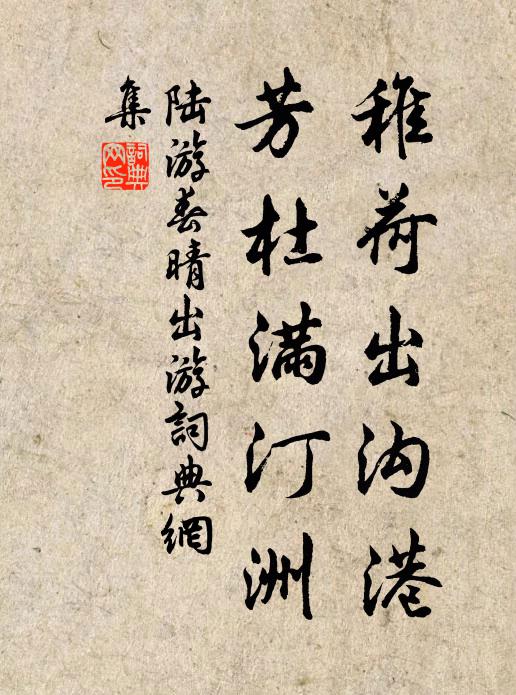 稚荷出沟港
芳杜满汀洲
陆游春晴出游詞典網
集
詞典
网印